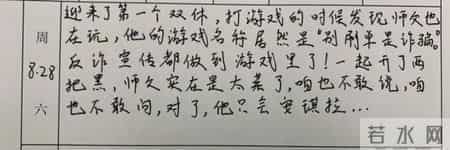 周
8.28
六
迎来了第一个双休，打游戏的时候发现师久也
在玩，他的游戏名称居然是“别刷单是诈骗”。
反诈宣传都做到游戏里了！一起开了两
把黑，师久实在是太菜了，咱也不敢说，咱
也不敢问，对了，他只会安琪拉…
若水网